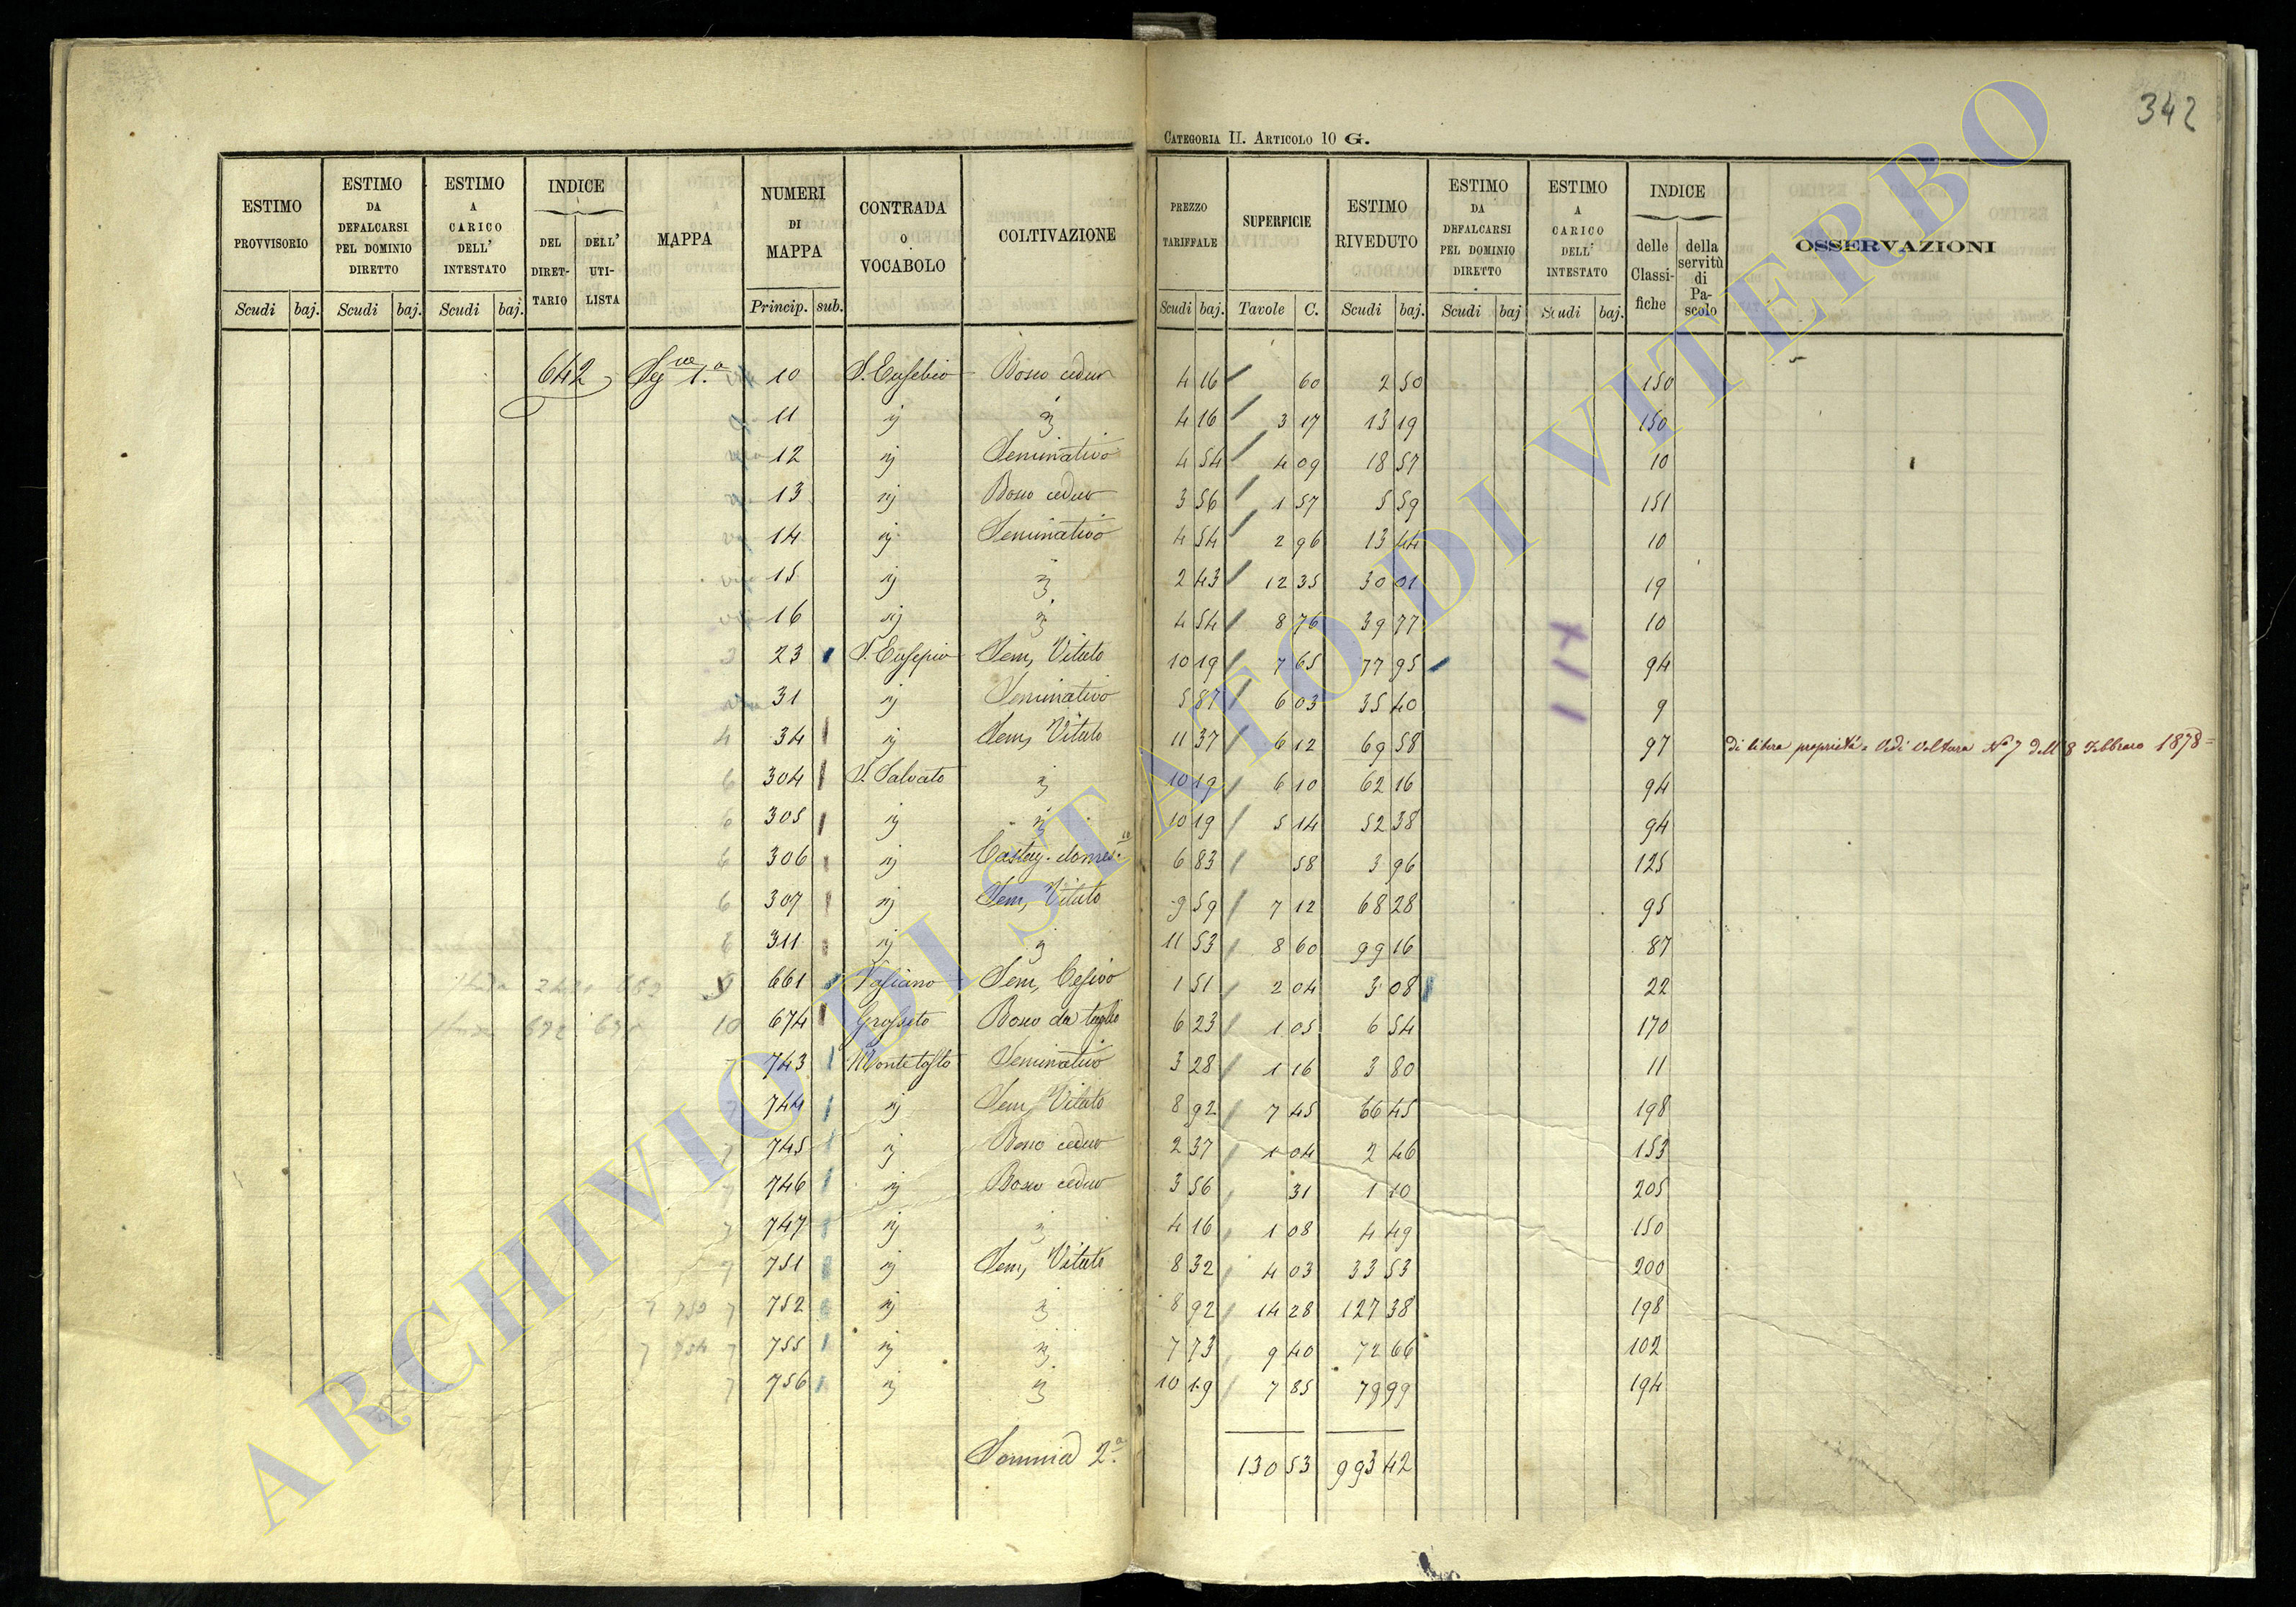 342
CATEGORIA II. ARTICOLO 10 G.
ESTIMO PROVVISORIO | ESTIMO DA DEFALCARSI PEL DOMINIO DIRETTO | ESTIMO A CARICO DELL' INTESTATO | INDICE DEL DIRETTARIO | DELL' UTILISTA | MAPPA | NUMERI DI MAPPA | CONTRADA O VOCABOLO | COLTIVAZIONE | PREZZO TARIFFALE | SUPERFICIE | ESTIMO RIVEDUTO | ESTIMO DA DEFALCARSI PEL DOMINIO DIRETTO | ESTIMO A CARICO DELL' INTESTATO | INDICE delle Classifiche | della servitù di Pascolo | OSSERVAZIONI
Scudi baj. | Scudi baj. | Scudi baj. | Princip. sub. | Scudi baj. | Tavole C. | Scudi baj. | Scudi baj | Scudi baj.
642 Seg 1.a 10 S. Eusebio Bosco ceduo 4 16 60 2 50 150
11 " " 4 16 3 17 13 19 150
12 " Seminativo 4 54 4 09 18 57 10
13 " Bosco ceduo 3 56 1 57 5 59 151
14 " Seminativo 4 54 2 96 13 44 10
15 " " 2 43 12 35 30 01 19
16 " " 4 54 8 76 39 77 10
23 S. Eusepio Sem, Vitato 10 19 7 65 77 95 94
31 " Seminativo 5 87 6 03 35 40 9
34 " Sem, Vitato 11 37 6 12 69 58 97 di libera proprietà = Vedi Voltura No 7 dell' 8 Febbraro 1878 =
304 S. Salvato " 10 19 6 10 62 16 94
305 " " 10 19 5 14 52 38 94
306 " Castag. domes. 6 83 58 3 96 125
307 " Sem, Vitato 9 59 7 12 68 28 95
311 " " 11 53 8 60 99 16 87
661 Vasiano Sem, Cesivo 1 51 2 04 3 08 22
674 Grosseto Bosco da taglio 6 23 1 05 6 54 170
743 Montetosto Seminativo 3 28 1 16 3 80 11
744 " Sem, Vitato 8 92 7 45 66 45 198
745 " Bosco ceduo 2 37 1 04 2 46 153
746 " Bosco ceduo 3 56 31 1 10 205
747 " " 4 16 1 08 4 49 150
751 " Sem, Vitato 8 32 4 03 33 53 200
752 " " 8 92 14 28 127 38 198
755 " " 7 73 9 40 72 66 102
756 " " 10 19 7 85 79 99 194
Somma 2.a 130 53 993 42
ARCHIVIO DI STATO DI VITERBO